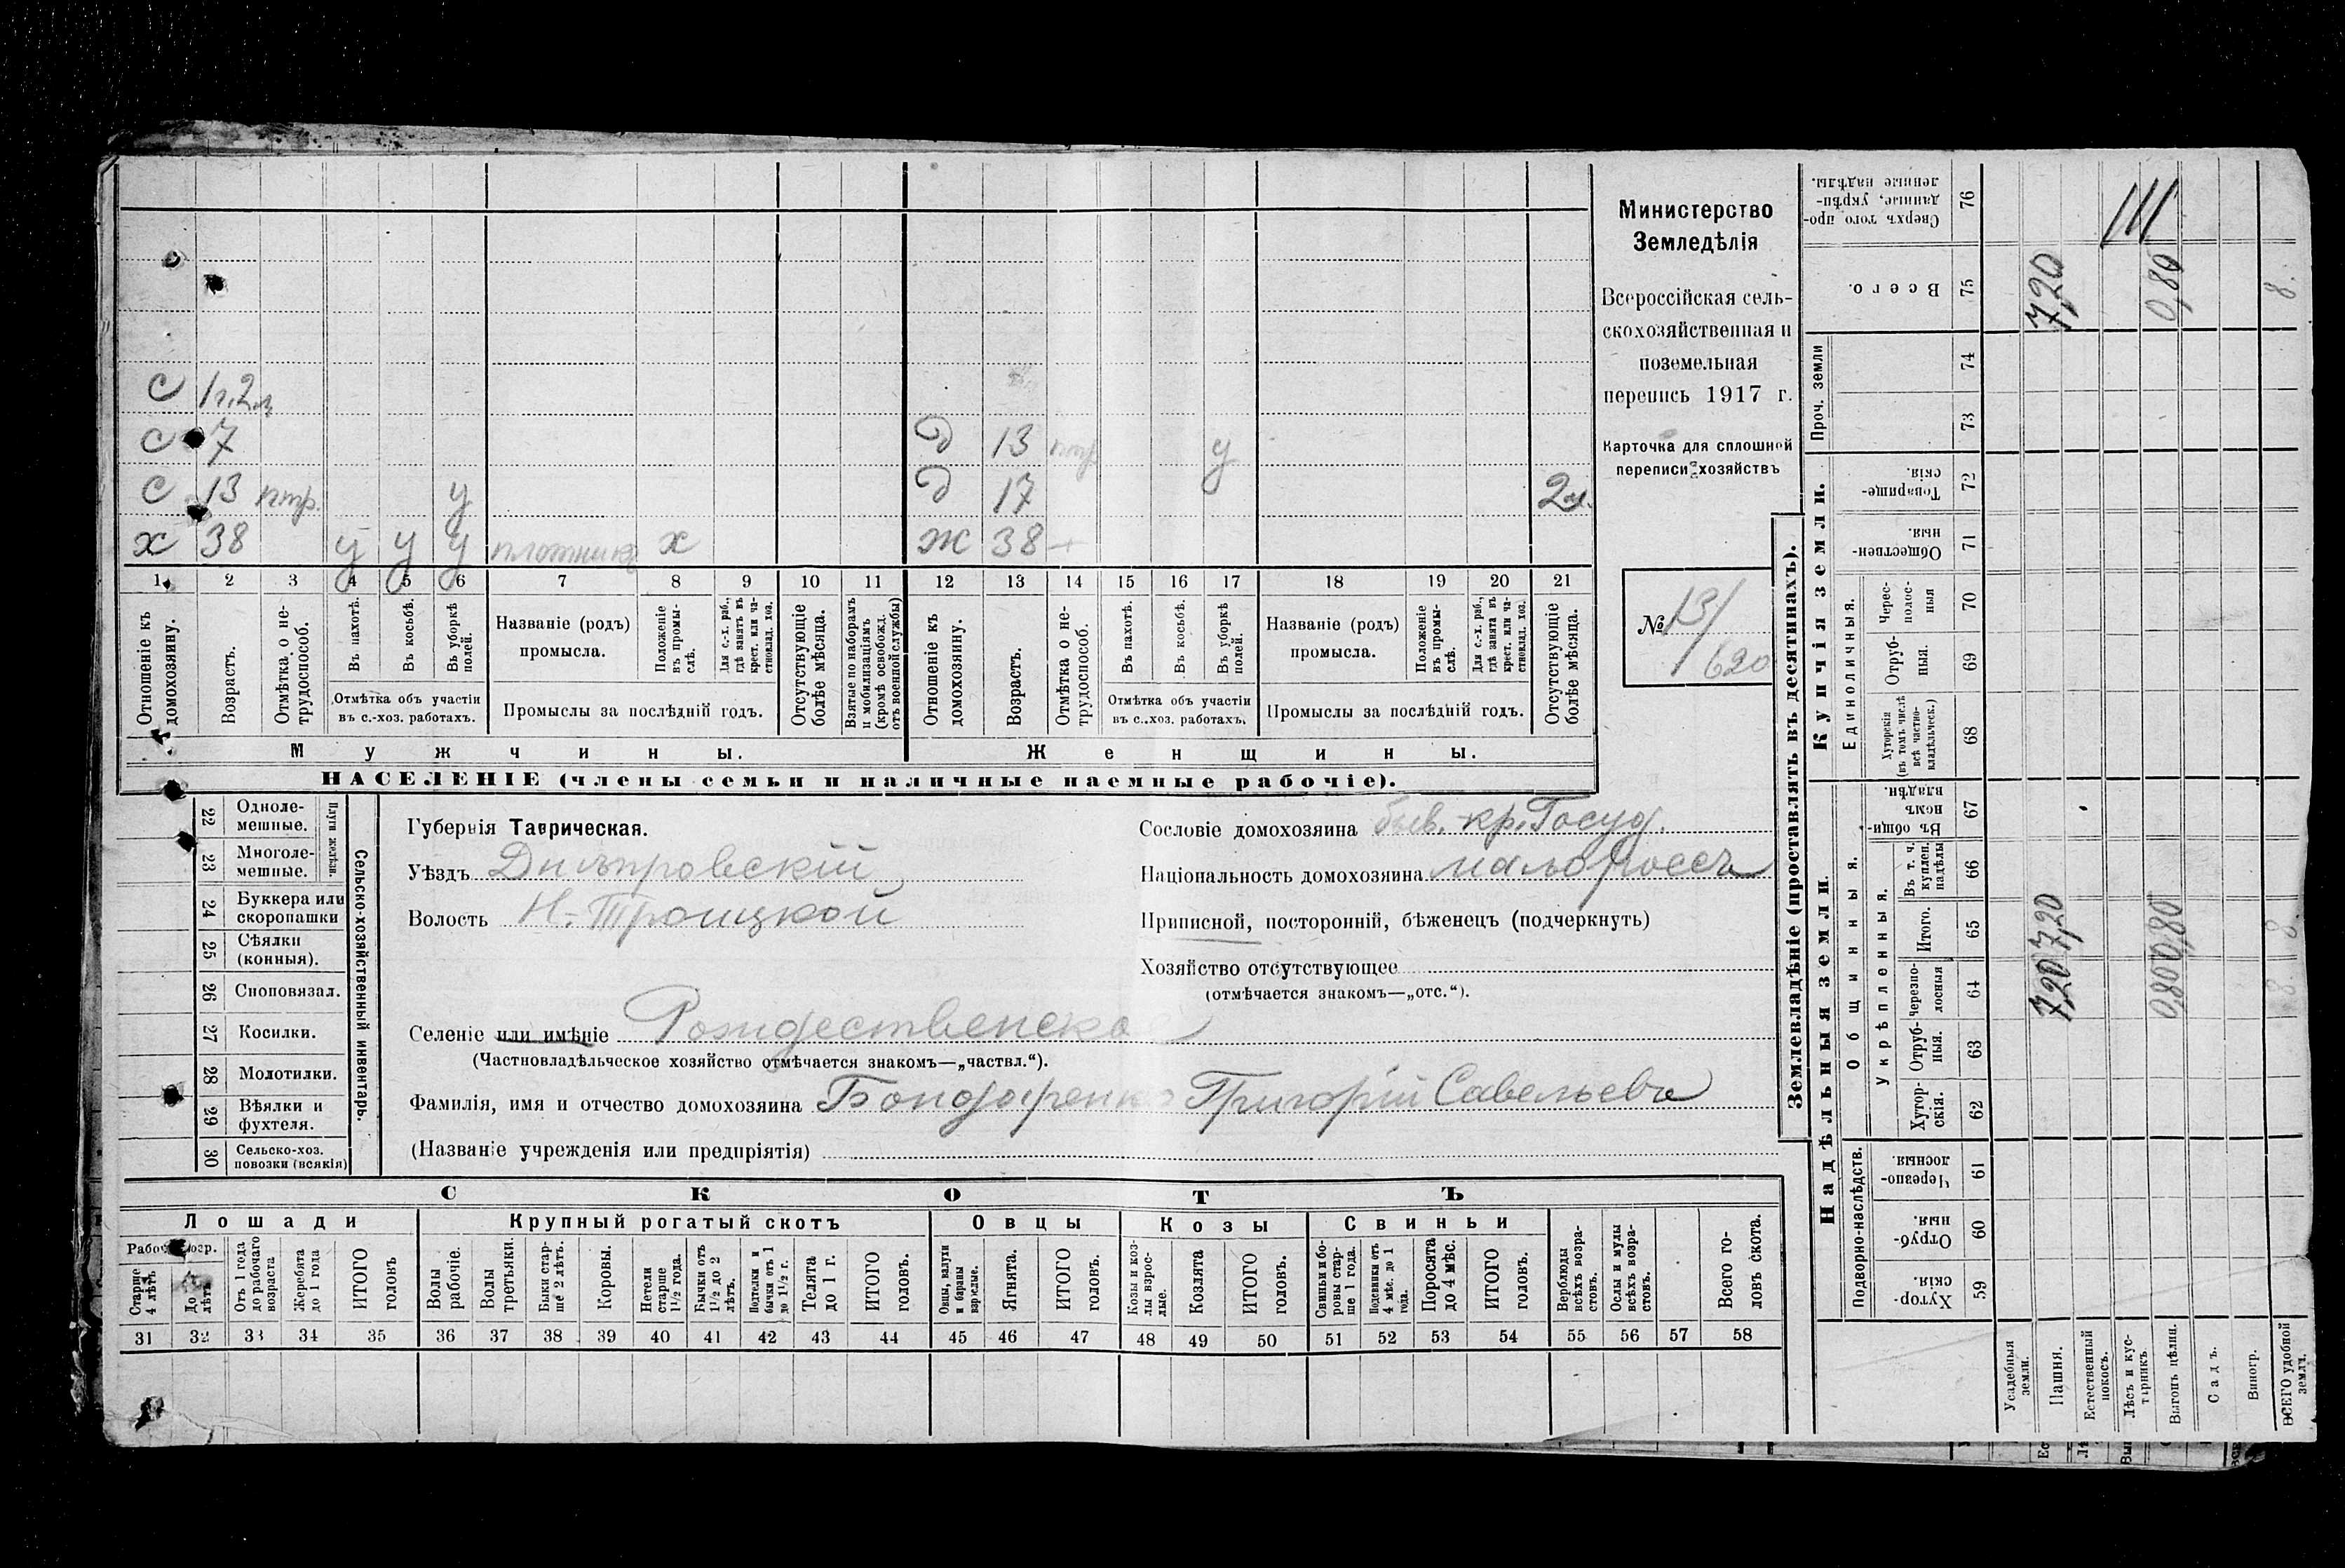 С 1г.2м.
С 7 д 13 у
С 13 нтр. у д 17 2м.
х 38 у у у плотникъ х ж 38
1 2 3 4 5 6 7 8 9 10 11 12 13 14 15 16 17 18 19 20 21
Отношеніе къ домохозяину.
Возрастъ.
Отмѣтка о нетрудоспособ.
Въ пахотѣ.
Въ косьбѣ.
Въ уборкѣ полей.
Отмѣтка объ участіи
въ с.-хоз. работахъ.
Названіе (родъ)
промысла.
Положеніе въ промыслѣ.
Для с.-х. раб., гдѣ занятъ въ крест. или частновлад. хоз.
Промыслы за послѣдній годъ.
Отсутствующіе болѣе мѣсяца.
Взятые по наборамъ и мобилизаціямъ (кромѣ освобожд. отъ военной службы)
Отношеніе къ домохозяину.
Возрастъ.
Отмѣтка о нетрудоспособ.
Въ пахотѣ.
Въ косьбѣ.
Въ уборкѣ полей.
Отмѣтка объ участіи
въ с.-хоз. работахъ.
Названіе (родъ)
промысла.
Положеніе въ промыслѣ.
Для с.-х. раб., гдѣ занята въ крест. или частновлад. хоз.
Промыслы за послѣдній годъ.
Отсутствующіе болѣе мѣсяца.
Мужчины. Женщины.
НАСЕЛЕНІЕ (члены семьи и наличные наемные рабочіе).
Министерство
Земледѣлія
Всероссійская сель-
скохозяйственная и
поземельная
перепись 1917 г.
Карточка для сплошной
переписи хозяйствъ
№ 13/620
22 Одноле-
мешные.
23 Многоле-
мешные.
Плуги желѣзн.
24 Буккера или
скоропашки
25 Сѣялки
(конныя).
26 Сноповязал.
27 Косилки.
28 Молотилки.
29 Вѣялки и
фухтеля.
30 Сельско-хоз.
повозки (всякія)
Сельско-хозяйственный инвентарь.
Губернія Таврическая.
Уѣздъ Днѣпровскій
Волость Н.-Троицкой
Селеніе или имѣніе Рождественско
(Частновладѣльческое хозяйство отмѣчается знакомъ—„частвл.“).
Фамилія, имя и отчество домохозяина Бондаренко Григорій Савельевъ
(Названіе учрежденія или предпріятія)
Сословіе домохозяина быв. кр. Госуд.
Національность домохозяина малороссъ
Приписной, посторонній, бѣженецъ (подчеркнуть)
Хозяйство отсутствующее
(отмѣчается знакомъ—„отс.“).
СКОТЪ
Лошади Крупный рогатый скотъ Овцы Козы Свиньи
Старше 4 лѣтъ
До лѣтъ
Отъ 1 года до рабочаго возраста
Жеребята до 1 года
ИТОГО головъ
Волы рабочіе.
Волы третьяки.
Быки старше 2 лѣтъ.
Коровы.
Нетели старше 1½ года.
Бычки отъ 1½ до 2 лѣтъ.
Подтелки и бычки отъ 1 до 1½ г.
Телята до 1 г.
ИТОГО головъ.
Овцы, валухи и бараны взрослые.
Ягнята.
ИТОГО головъ.
Козы и козлы взрослые.
Козлята
ИТОГО головъ.
Свиньи и боровы старше 1 года.
Подсвинки отъ 4 мѣс. до 1 года.
Поросята до 4 мѣс.
ИТОГО головъ.
Верблюды всѣхъ возрастовъ.
Ослы и мулы всѣхъ возрастовъ.
Всего головъ скота.
31 32 33 34 35 36 37 38 39 40 41 42 43 44 45 46 47 48 49 50 51 52 53 54 55 56 57 58
Землевладѣніе (проставлять въ десятинахъ).
Сверхъ того проданные, укрѣпленные надѣлы. 76
Всего. 75 7,20 0,80 8.
Проч. земли 74
73
Купчія земли.
Товарищескія. 72
Общественныя 71
Единоличныя.
Чересполосныя 70
Отрубныя. 69
Хуторскія (въ томъ числѣ всѣ частновладѣльческ.) 68
Надѣльныя земли
Общинныя.
Въ общиномъ владѣн. 67
Укрѣпленныя.
Въ т. ч. куплен. надѣлы 66
Итого. 65 7,20 0,80 8.
Черезполосныя 64 7,20 0,80 8.
Отрубныя. 63
Хуторскія. 62
Подворно-наслѣдств.
Черезполосныя. 61
Отрубныя. 60
Хуторскія. 59
Усадебныя земли.
Пашня.
Естественный покосъ.
Лѣсъ и кустарникъ.
Выгонъ цѣлин.
Садъ.
Виногр.
ВСЕГО удобной земл.